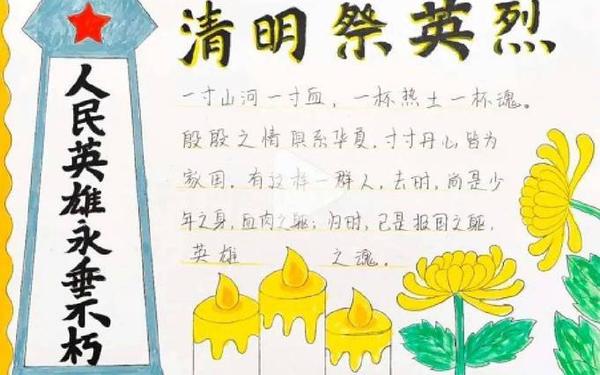 清明祭英烈
人民英雄永垂不朽
一寸山河一寸血，一杯热土一杯魂。
殷殷之情俱系华夏，寸寸丹心皆为
家国。有这样一群人，去时，尚是少
年之身，血肉之躯；归时，已是报国之躯，
英雄 之魂。